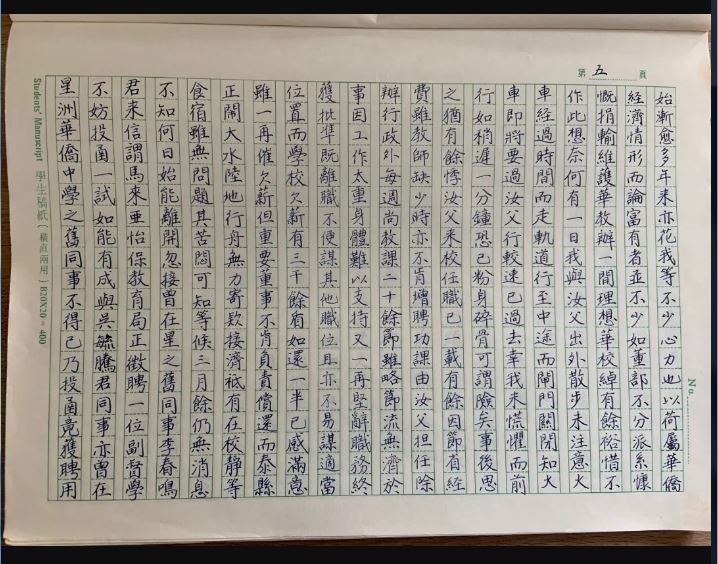 第五頁
No.
始漸愈多年来亦花我等不少心力也以荷屬華僑
經濟情形而論富有者並不少如董部不分派系慷
慨捐輸維護華教辦一間理想華校綽有餘裕惜不
作此想奈何有一日我與汝父出外散步未注意火
車經過時間而走軌道行至中途而閘門關閉知火
車即將要過汝父行較速已過去幸我未慌懼而前
行如稍遲一分鐘恐已粉身碎骨可謂險矣事後思
之猶有餘悸汝父来校任職已一載有餘因節省經
費雖教師缺少時亦不肯增聘功課由汝父担任除
辦行政外每週尚教課二十餘節雖略節流無濟於
事因工作太重身體難以支持又一再堅辭職務終
獲批準既離職不便謀其他職位且亦不易謀適當
位置而學校欠薪有三千餘盾如還一半已感滿意
雖一再催欠薪但重要董事不肯負責償還而泰縣
正鬧大水陸地行舟無力寄欵接濟祗有在校靜等
食宿雖無問題其苦悶可知等候三月餘仍無消息
不知何日始能離開忽接曾在星之舊同事李春鳴
君来信謂馬来亜怡保教育局正徵聘一位副督學
不妨投函一試如能有成與吳毓騰君同事亦曾在
星洲華僑中學之舊同事不得已乃投函竟獲聘用
Students' Manuscript 學生稿紙（橫直兩用）B20X20=400